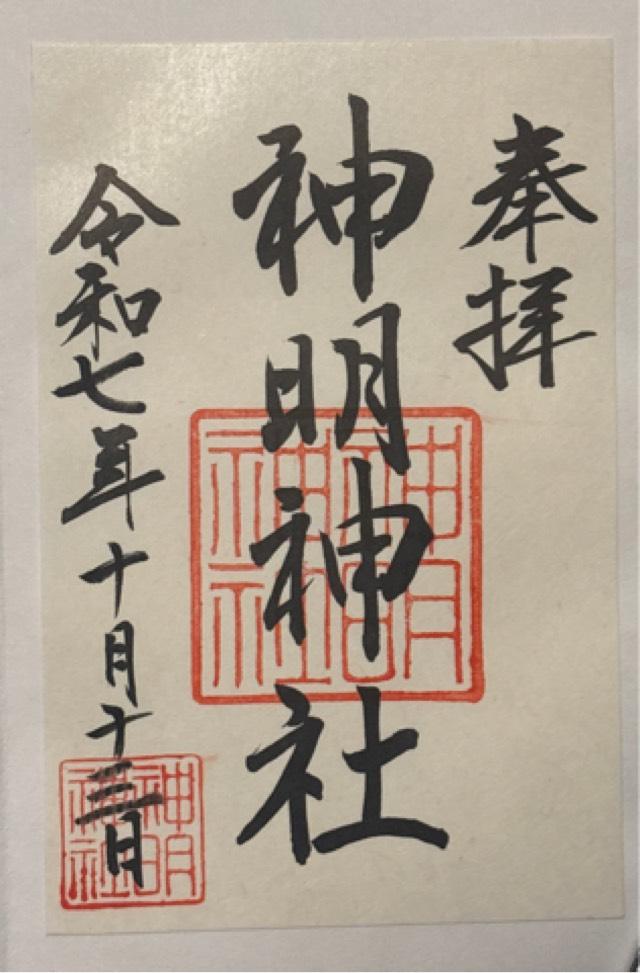 奉拝
神明神社
神明神社
令和七年十月十三日
神明神社